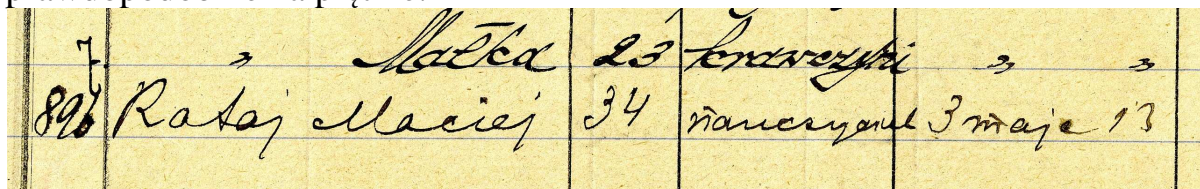 7 " Małka 23 krawczyni " "
896 Rataj Maciej 34 nauczyciel 3 maja 13